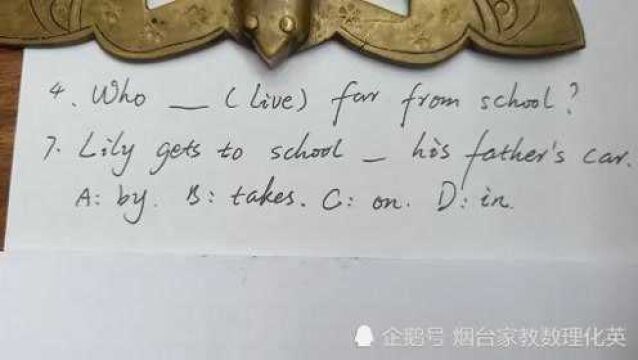 4. Who __ (live) far from school?
7. Lily gets to school _ his father's car.
A: by. B: takes. C: on. D: in.
企鹅号 烟台家教数理化英